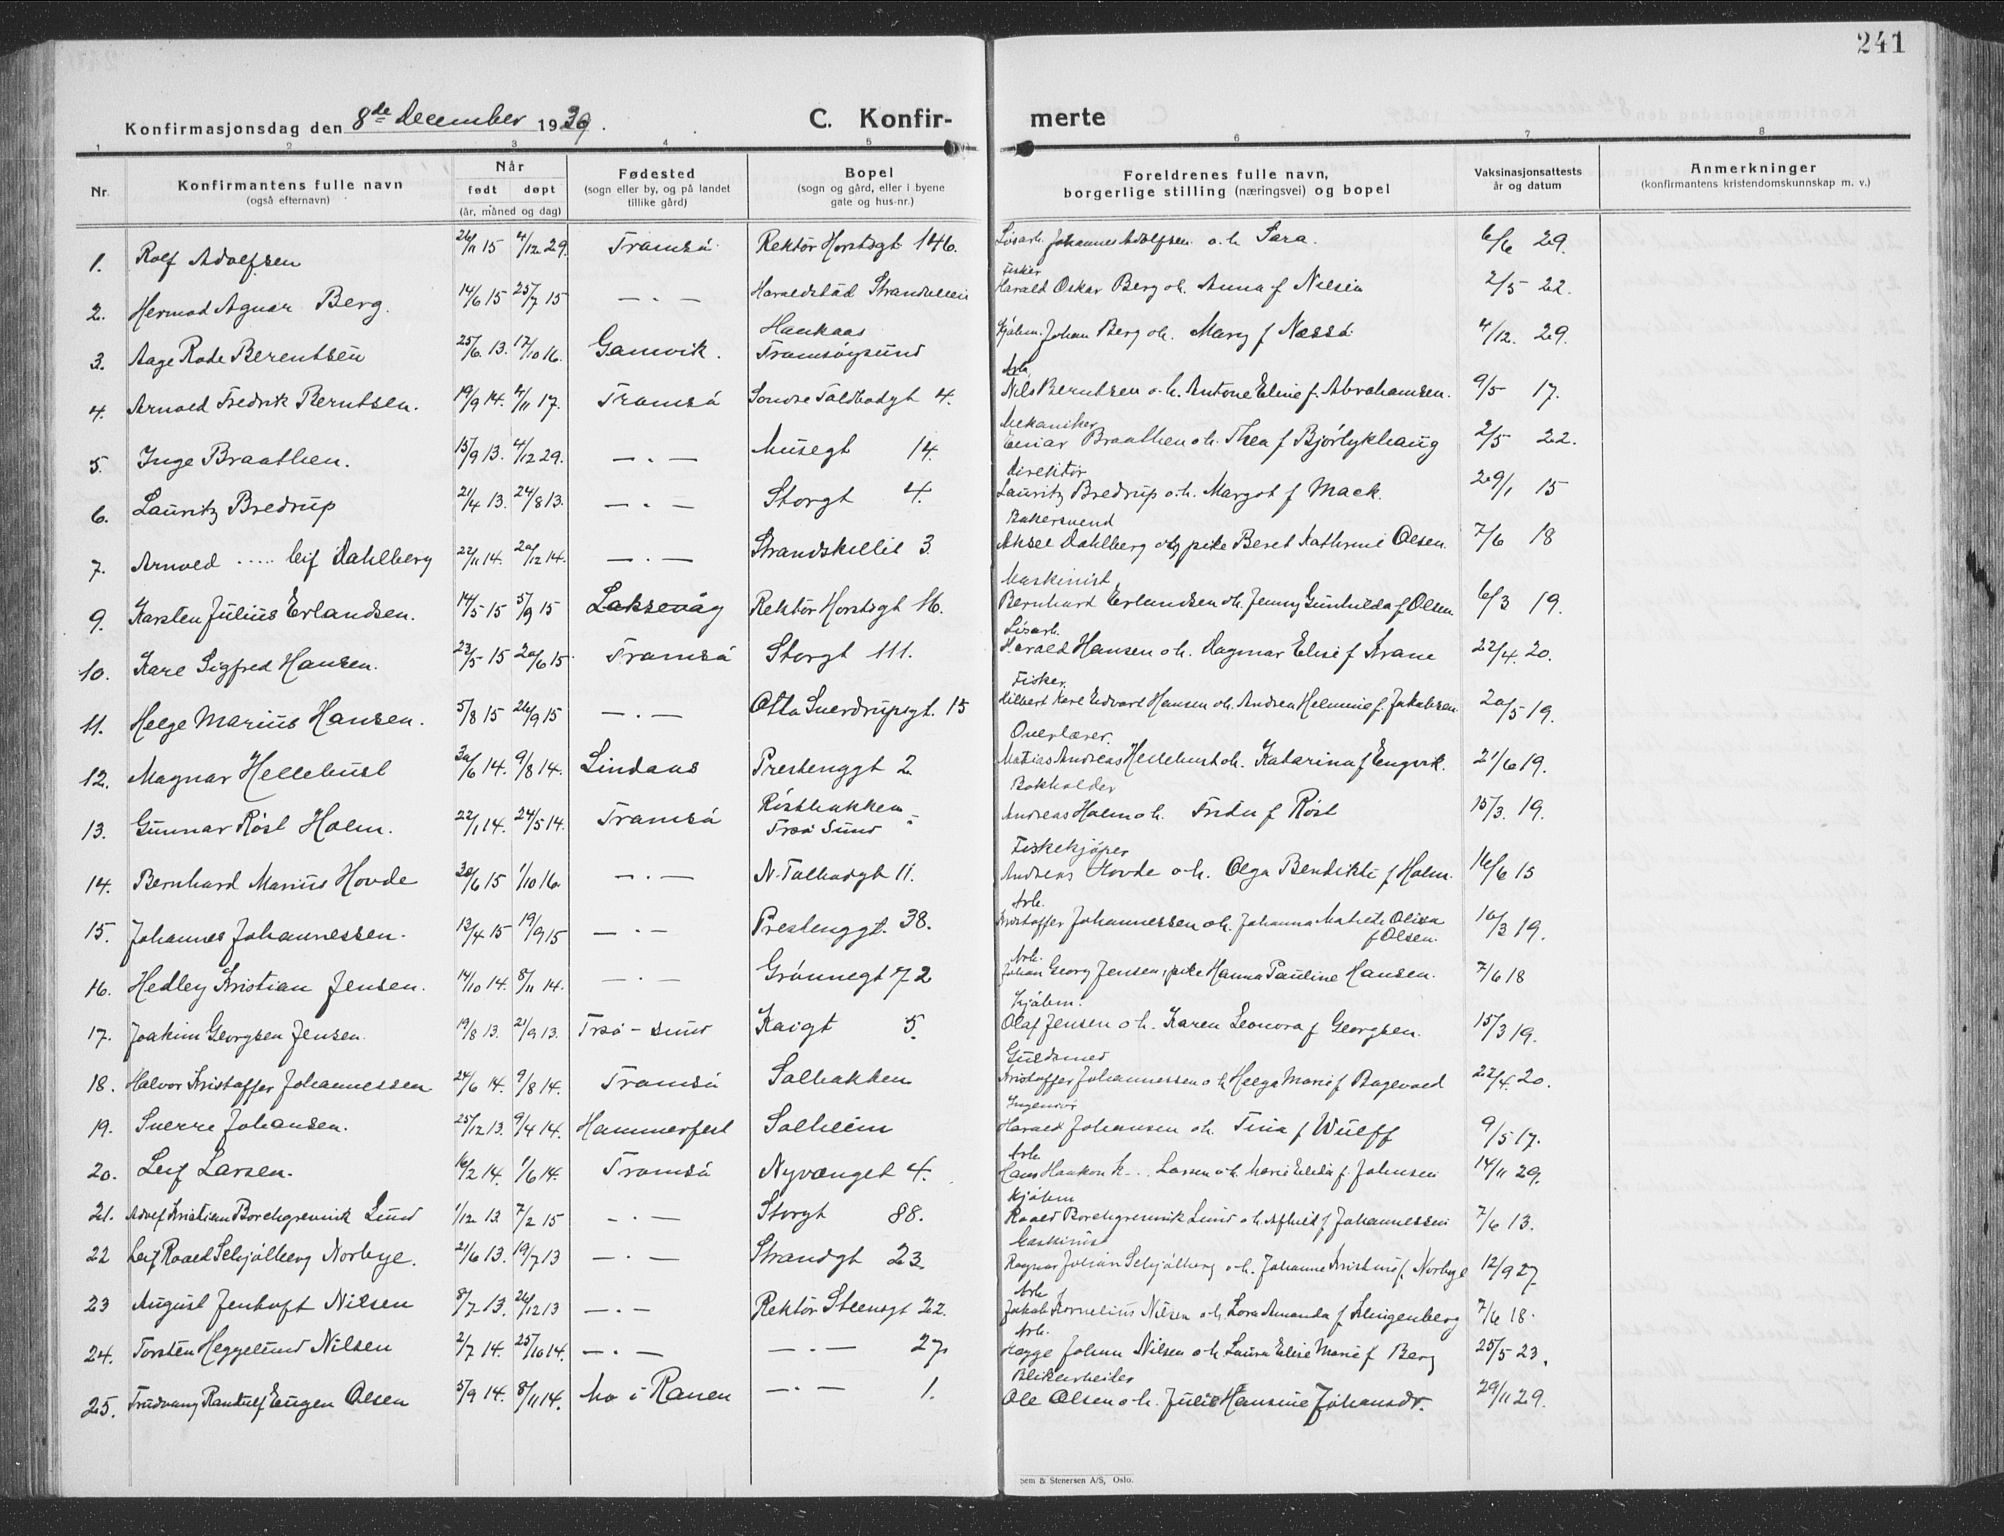 241
Konfirmasjonsdag den 8de December 1929.
C. Konfir-
merte
1 2 3 4 5 6 7 8
Nr.
Konfirmantens fulle navn
(også efternavn)
Når
født døpt
(år, måned og dag)
Fødested
(sogn eller by, og på landet
tillike gård)
Bopel
(sogn og gård, eller i byene
gate og hus-nr.)
Foreldrenes fulle navn,
borgerlige stilling (næringsvei) og bopel
Vaksinasjonsattests
år og datum
Anmerkninger
(konfirmantens kristendomskunnskap m. v.)
1. Rolf Adolfsen 26/11 15 4/12 29 Tromsö Rektör Horstsgt 146. Lösarb. Johannes Adolfsen o. h. Sara. 6/6 29.
2. Hermod Agnar Berg. 14/6 15 25/7 15 — . — Haraldstad Strandveien
Fisker
Harald Oskar Berg o. h. Anna f Nilsen 2/5 22.
3. Aage Rode Berentsen 25/6 13. 17/10 16. Gamvik.
Tromsöysund
Johan Berg o. h. Mary f Næssö 4/12. 29.
4. Arnold Fredrik Berntsen. 19/9 14. 4/11 17. Tromsö Söndre Toldbodgt 4.
Arb.
Nils Berntsen o. h. Antone Eline f. Abrahamsen. 9/5 17.
5. Inge Braathen. 15/9 13. 4/12 29. — . — Musegt 14.
Mekaniker
Einar Braathen o. h. Thea f Bjørlykhaug 2/5 22.
6. Lauritz Bredrup 21/4 13. 24/8 13. — . — Storgt 4.
Direktör
Lauritz Bredrup o. h. Margot f Mack. 29/1 15
7. Arnold ..... Leif Dahlberg 22/11 14. 20/12 14. — . — Strandskillet 3.
Bakersvend
Aksel Dahlberg og pike Beret Kathrine Olsen. 7/6 18
9. Karsten Julius Erlandsen. 14/5 15 5/9 15 Laksevåg Rektör Horstsgt 16.
Maskinist
Bernhard Erlandsen o. h. Jenny Gunhilda f Olsen 6/3 19.
10. Kare Sigfred Hansen. 23/5 15 20/6 15 Tromsö Storgt 111.
Lösarb.
Harald Hansen o. h. Dagmar Elise f Krane 22/4. 20.
11. Helge Marius Hansen. 5/8 15 26/9 15 — . — Otto Sverdrupsgt. 15
Fisker.
Hilbert Karl Edvart Hansen o. h. Andrea Helmine f. Jakobsen 20/5 19.
12. Magnar Hellehust 30/6 14. 9/8 14. Lindaas Prestenggt 2.
Overlærer.
Matias Andreas Hellehust o. h. Katarina f Engvik. 21/6 19.
13. Gunnar Röst Holm. 22/1 14. 24/5 14. Tromsö Röstbakken
Trsö Sund
Bokholder
Andreas Holm o. h. Frida f Röst 15/3. 19.
14. Bernhard Marius Hovde 20/6 15 1/10 16. — . — N. Tolbodgt 11.
Fiskekjöper
Andreas Hovde o. h. Olga Bendikte f Holm. 16/6 15
15. Johannes Johannessen. 13/4 15 19/9 15 — . — Prestenggt. 38.
Arb.
Kristoffer Johannessen o. h. Johanna Mahete Olisa
f Olsen. 10/3 19.
16. Hedley Kristian Jensen. 14/10 14. 8/11 14. — . — Grönnegt 72
Arb.
Johan Georg Jensen, pike Hanna Pauline Hansen. 7/6 18
17. Joakim Georgsen Jensen. 19/8 13. 21/9 13. Trsö – sund Kaigt 5.
Kjölem.
Olaf Jensen o. h. Karen Leonora f Georgsen. 15/3 19.
18. Halvor Kristoffer Johannessen 24/6 14. 9/8 14. Tromsö Solbakken
Guldsmed
Kristoffer Johannessen o. h Helga Marie f 22/4. 20.
19. Sverre Johansen. 25/12 13. 9/4 14. Hammerfest Solheim
Ingeniör
Harald Johansen o. h. Tina f Wulff 9/5 17.
20. Leif Larsen. 16/2 14. 1/6 14. Tromsö Nyvænget 4.
Arb.
Hans Haakon K... Larsen o. h Marie Elida f. Johnsen 14/11 29.
21. Adolf Kristian Borchgrevink Lund 1/12 13. 7/2 15 — . — Storgt 88.
Roald Borchgrevink Lund o. h Alfhild f Johannessen 7/6 13.
22 Leif Roald Schjölberg Norbye. 21/6 13. 19/7 13 — . — Strandgt 23.
Ragnar Johan Schjölberg o. h. Johanne Kristine f. Norbye 12/9 27
23 August Jentoft Nilsen 8/7 13. 26/12 13 — . — Rektör Steensgt 22.
Arb
Jakob Kornelius Nilsen o. h. Lora Amanda f Klingenberg 7/6 18.
24. Torsten Heggelund Nilsen 2/7 14. 25/10 14. — . — — . — 27.
Arb.
Hegge Johan Nilsen o. h Laura Elise Marie f Berg 25/5 23.
25. Trudvang Randulf Eugen Olsen 5/9 14. 8/11 14. Mo i Ranen — . — 1.
Blikarbeider
Ole Olsen o. h. Julie Hansine Johansdr. 29/11 29.
Sem & Stenersen A/S, Oslo.